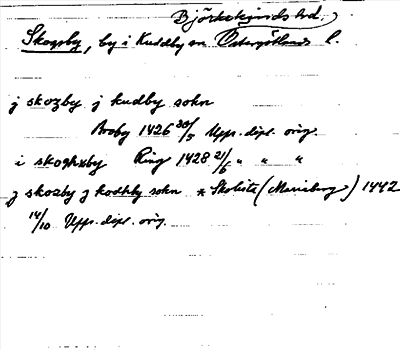 Björkekinds hd.
Skogsby, by i Kuddby sn Östergötlands l.
j skozby j kudby sokn
Broby 1426 30/5 Upps. dipl. orig.
i skoghxby Ring 1428 21/6 " " "
j skozby j kodhby sokn * Skokloster (Marieberg) 1442
14/10 Upps. dipl. orig.